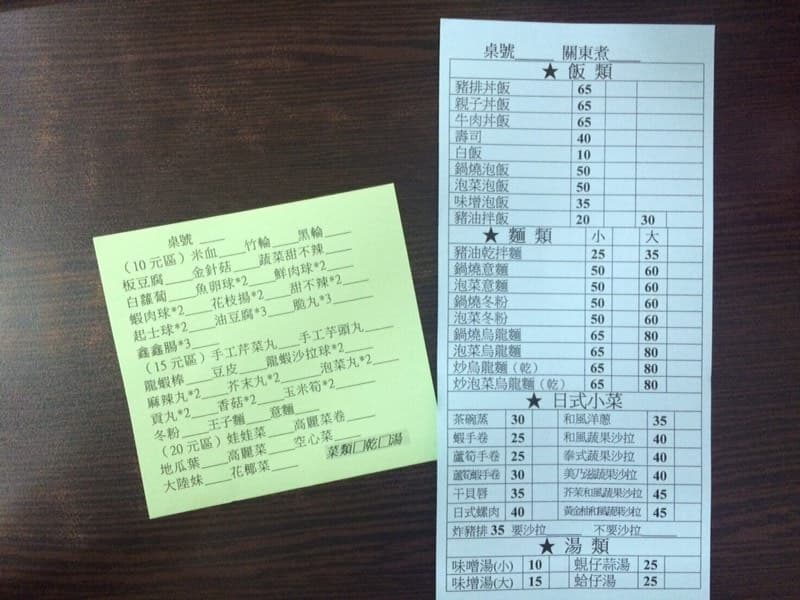 桌號 ___
（10 元區）米血___ 竹輪___黑輪___
板豆腐___金針菇___蔬菜甜不辣___
白蘿蔔___魚卵球*2___鮮肉球*2___
蝦肉球*2___花枝揚*2___甜不辣*2___
起士球*2___油豆腐*3___脆丸*3___
鑫鑫腸*3___
（15 元區）手工芹菜丸___手工芋頭丸___
龍蝦棒___豆皮___龍蝦沙拉球*2___
麻辣丸*2___芥末丸*2___泡菜丸*2___
貢丸*2___香菇*2___玉米筍*2___
冬粉___王子麵___意麵___
（20 元區）娃娃菜___高麗菜卷___
地瓜葉___高麗菜___空心菜___
大陸妹___花椰菜___ 菜類□乾□湯
桌號____ 關東煮____
★ 飯 類
豬排丼飯 65
親子丼飯 65
牛肉丼飯 65
壽司 40
白飯 10
鍋燒泡飯 50
泡菜泡飯 50
味增泡飯 35
豬油拌飯 20 30
★ 麵 類 小 大
豬油乾拌麵 25 35
鍋燒意麵 50 60
泡菜意麵 50 60
鍋燒冬粉 50 60
泡菜冬粉 50 60
鍋燒烏龍麵 65 80
泡菜烏龍麵 65 80
炒烏龍麵（乾） 65 80
炒泡菜烏龍麵（乾） 65 80
★ 日式小菜
茶碗蒸 30 和風洋蔥 35
蝦手卷 25 和風蔬果沙拉 40
蘆筍手卷 25 泰式蔬果沙拉 40
蘆筍蝦手卷 30 美乃滋蔬果沙拉 40
干貝唇 35 芥茉和風蔬果沙拉 45
日式螺肉 40 黃金柚和風蔬果沙拉 45
炸豬排 35 要沙拉____ 不要沙拉____
★ 湯 類
味噌湯(小) 10 蜆仔蒜湯 25
味增湯(大) 15 蛤仔湯 25